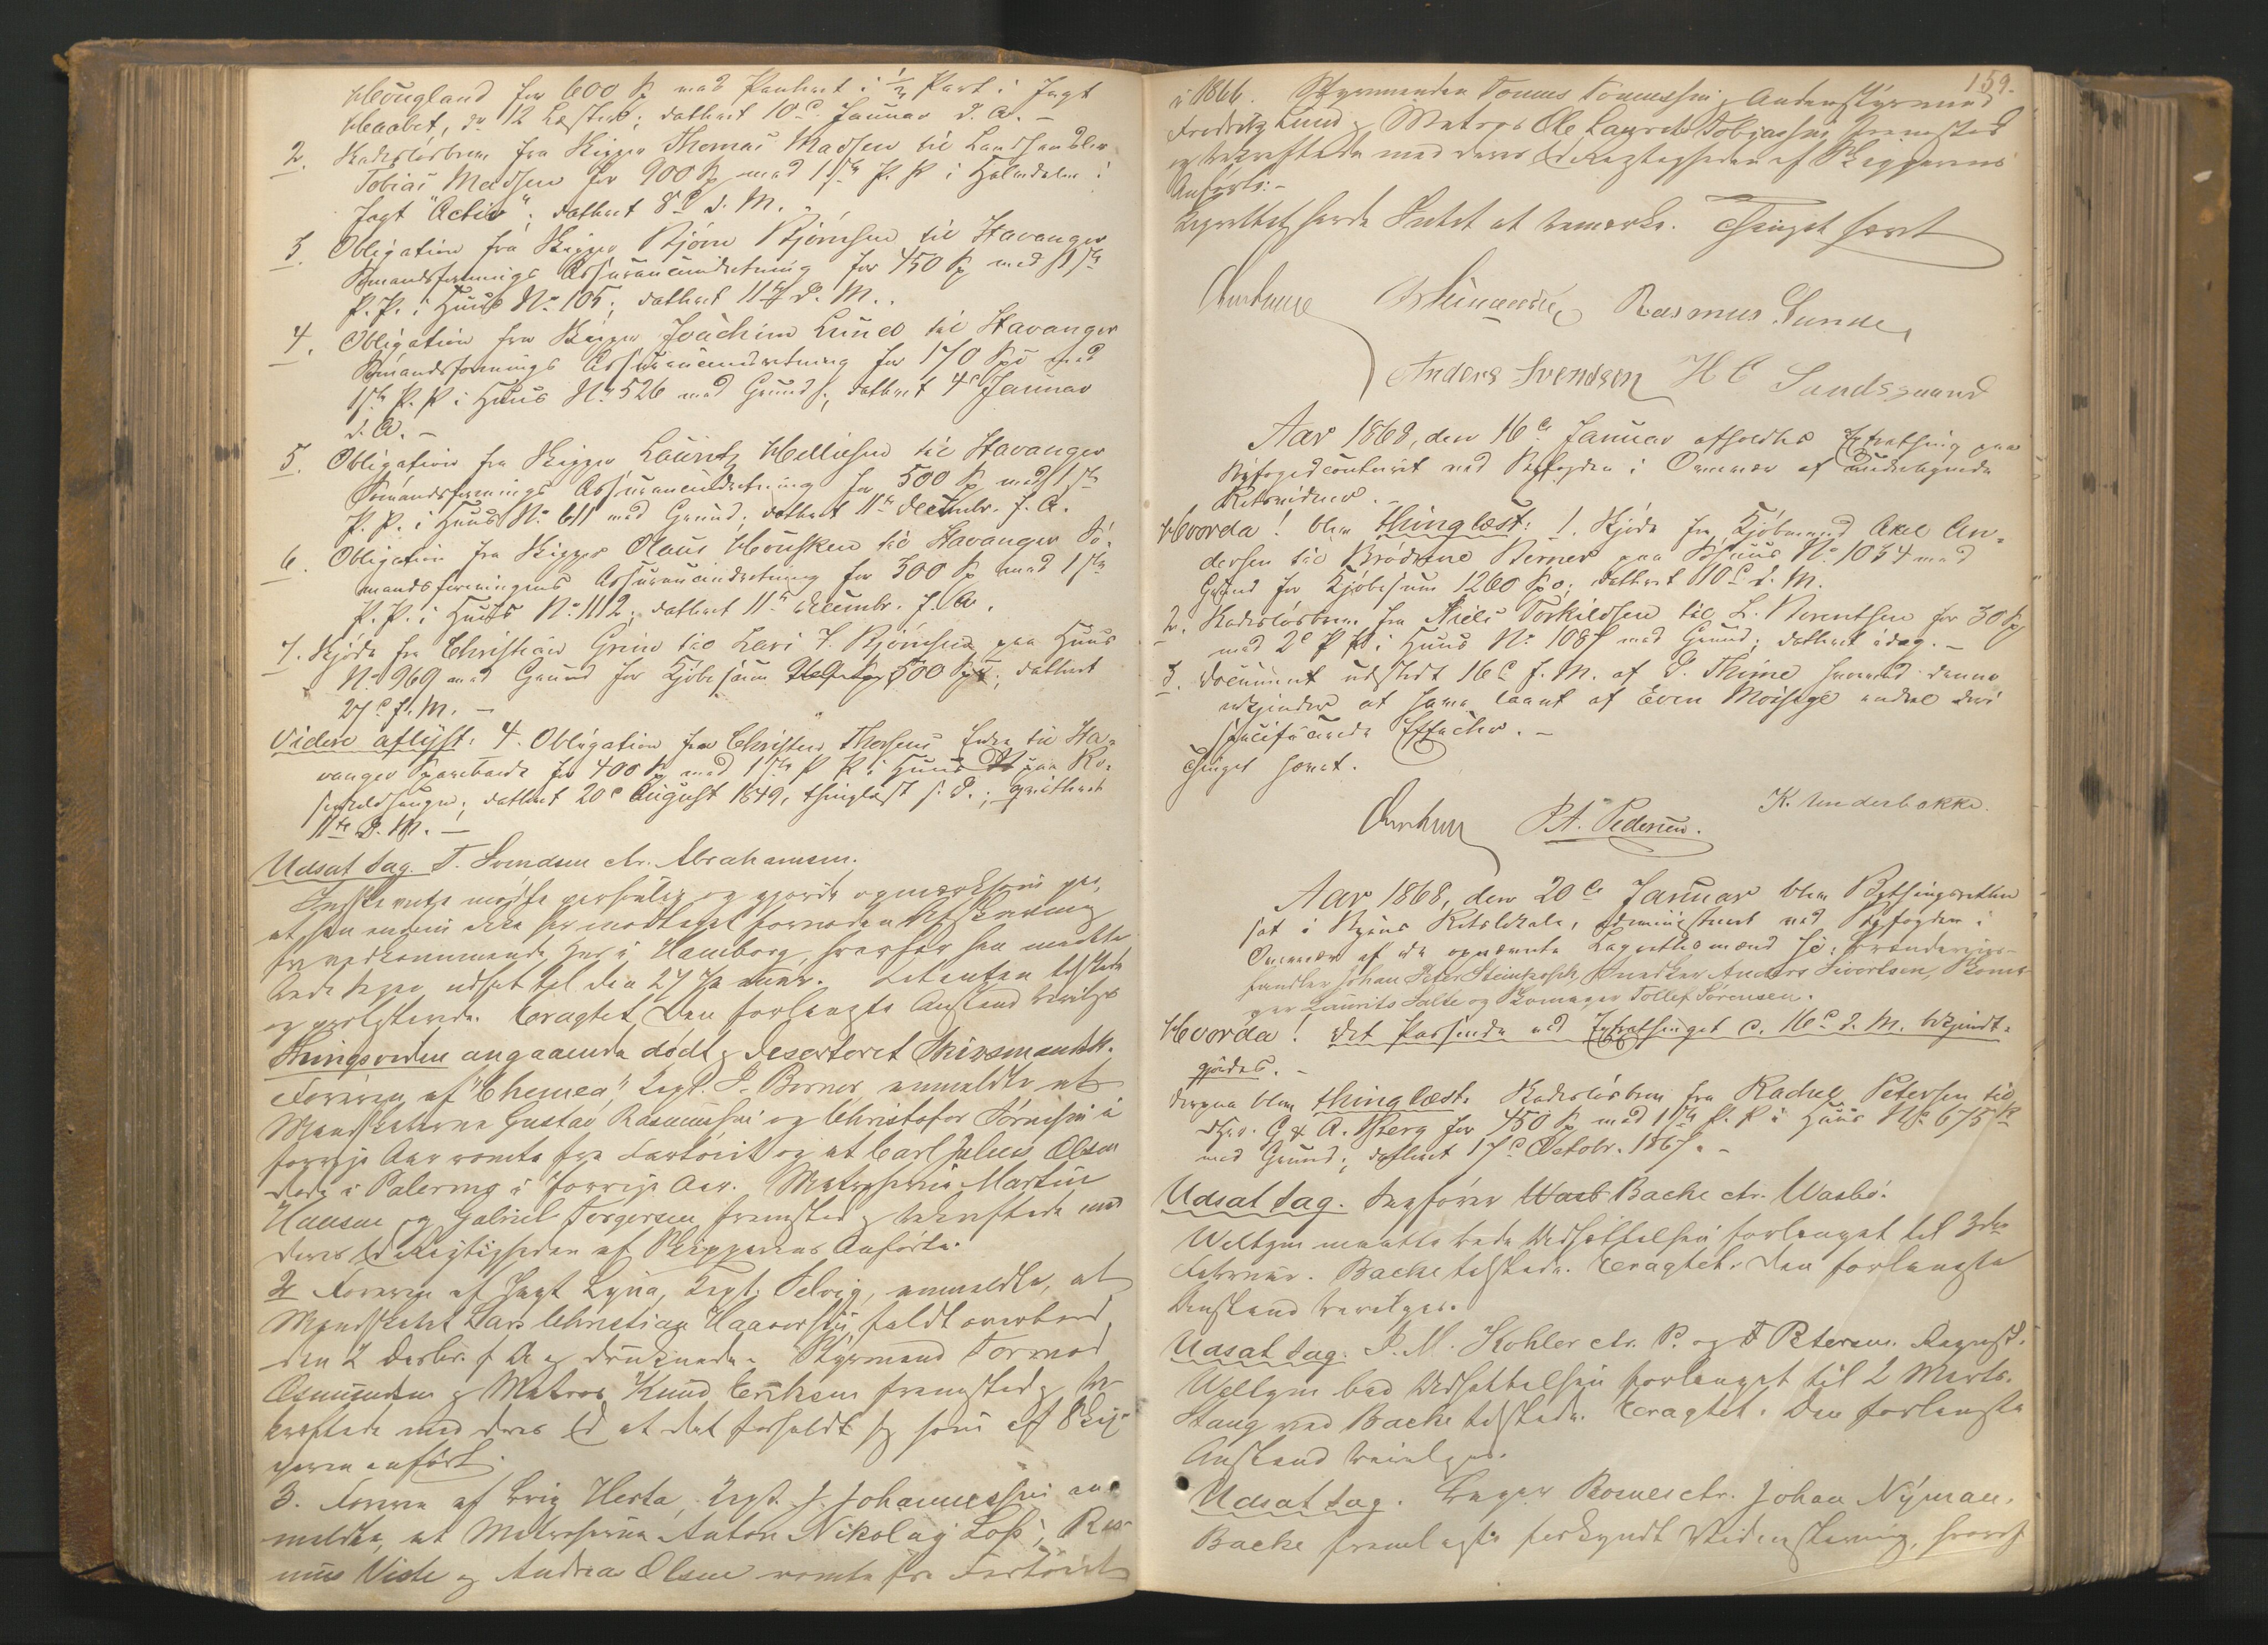 Hougland for 600 Sp med Panteret i 1/2 Part i Jagt
Haabet, dr 12 Læster; dateret 10de Januar d. A. -
2. Skadesløsbrev fra Skipper Thomas Madsen til Landhandler
Tobias Madsen for 900 Sp med 1ste P. P. i
Jagt "Activ"; dateret 8de d. M.
3. Obligation fra Skipper Bjørn Bjørnsen til Stavanger
Sømandsforenings Assuranceindretning for 450 Sp med 1ste
P. P. i Huus No 105; dateret 11te d. M.
4. Obligation fra Skipper Joachim Lund til Stavanger
Sømandsforenings Assuranceindretning for 170 Spd med
1ste P. P. i Huus No 526 med Grund, dateret 4de Januar
d. A. -
5. Obligation fra Skipper Lauritz Helliesen til Stavanger
Sømandsforenings Assuranceindretning for 500 Sp med 1ste
P. P. i Huus No 611 med Grund; dateret 11te Decembr. f. A.
6. Obligation fra Skipper Olaus Housken til Stavanger Sø-
mandsforenings Assuranceindretning for 300 Sp med 1ste
P. P. i Huus No 1112; dateret 11te Decembr. f. A.
7. Skjøde fra Christian Grim til Lars T. Bjørnsen paa Huus
No 969 med Grund for Kjøbesum 500 Spd; dateret
27de f. M. -
Videre aflyst: 4. Obligation fra Christen Thorsens Enke til Sta-
vanger Sparebank for 400 Sp med 1ste P. P. i Huus paa
dateret 20de August 1849, thinglæst s. D.; qvitteret
11te d. M. -
Udsat Sag. T. Svendsen ctr. Abrahamsen.
mødte personlig og gjorde opmærksom paa,
at han endnu ikke har modtaget fornøden Erklæring
fra vedkommende Huus i Hamborg, hvorfor han maatte
bede Sagen udsat til den 27 Januar. Citanten tilstede
og protesterede. Eragtet: Den forlangte Anstand bevilges
Thingsvidne angaaende dødt og deserteret Skibsmandsk.
Føreren af "Chemca", Capt. P. Berner anmeldte at
Mandskaberne Gustav Rasmussen og Christofer Tørresen i
forrige Aar rømte fra Fartøiet og at Carl Julius Olsen
døde i Palermo i forrige Aar. Matroserne Martin
Hansen og Gabriel Torgersen fremstod og bekræftede med
deres Ed Rigtigheden af Skipperens Anførte.
2 Føreren af Jagt Lyna, Capt. Selvig, anmeldte, at
Mandskabet Lars Christian Haavorsen faldt overbord
den 2 Decbr. f. A. og druknede. Styrmand Tormod
Osmundsen og Matros Knud Eriksen fremstod og be-
kræftede med deres Ed at det forholdt sig som af Skip-
peren anført.
3. Føreren af Brig Herta, Capt. J. Johannessen an-
meldte, at Matroserne Anton Nikolay Loß, Ras-
mus Viste og Andreas Olsen rømte fra Fartøiet
159.
i 1866. Styrmanden Tønnes Tønnessen, Andenstyrmand
Fredrik Lund og Matros Ole Lauritz Tobiassen fremstod
og bekræftede med deres Ed Rigtigheden af Skipperens
Anførte. -
Lagrettet havde Intet at bemærke. Thinget hævet
Rasmus Sunde,
Anders Svendsen H C Sandsgaard
Aar 1868, den 16de Januar afholdtes Extrathing paa
Byfogedcontoiret ved Byfogden i Overvær af undertegnede
Retsvidner.
Hvorda! blev thinglæst: 1. Skjøde fra Kjøbmand Axel An-
dersen til Brødrene Berner paa Søhuus No 1034 med
Grund for Kjøbesum 1260 Spd; dateret 10de d. M.
2. Skadesløsbrev fra Niels Torkildsen til L. Berentsen for 30 Sp
med 2de P. P. i Huus No 1087 med Grund; dateret idag. -
3. Document udstedt 16de f. M. af P. Thime hvorved denne
erkjender at have laant af Even Moisige endel deri
specificerede Effecter. -
Thinget hævet.
P. A. Pedersen. K. Underbakke.
Aar 1868, den 20de Januar blev Bythingsretten
sat i Byens Retslokale, administreret ved Byfogden i
Overvær af de opnævnte Lagrettesmænd for: Brændeviins-
handler Johan Peter Steinkopsh, Snedker Anders Sivertsen, Skoma-
ger Laurits Salte og Skomager Tollef Sørensen.
Hvorda! det Passerede ved Extrathinget d. 16de d. M. bekjendt-
gjordes. -
Derpaa blev thinglæst: Skadesløsbrev fra Rachel Petersen til
Hdr. G & A. Berg for 450 Sp med 1ste P. P. i Huus No 675
med Grund; dateret 17de Octobr. 1867. -
Udsat Sag. Sagfører Bache ctr. Waabø.
maatte bede Udsættelsen forlænget til 3die
Februar. Backe tilstede. Eragtet. Den forlangte
Anstand bevilges.
Udsat Sag. J. M. Kohler ctr. P. og T Petersen.
bad Udsættelsen forlænget til 2 Marts.
Stang ved Backe tilstede. Eragtet. Den forlangte
Anstand bevilges.
Udsat Sag. ctr. Johan Nyman.
Backe fremlagte forkyndt Stedning, hvoraf